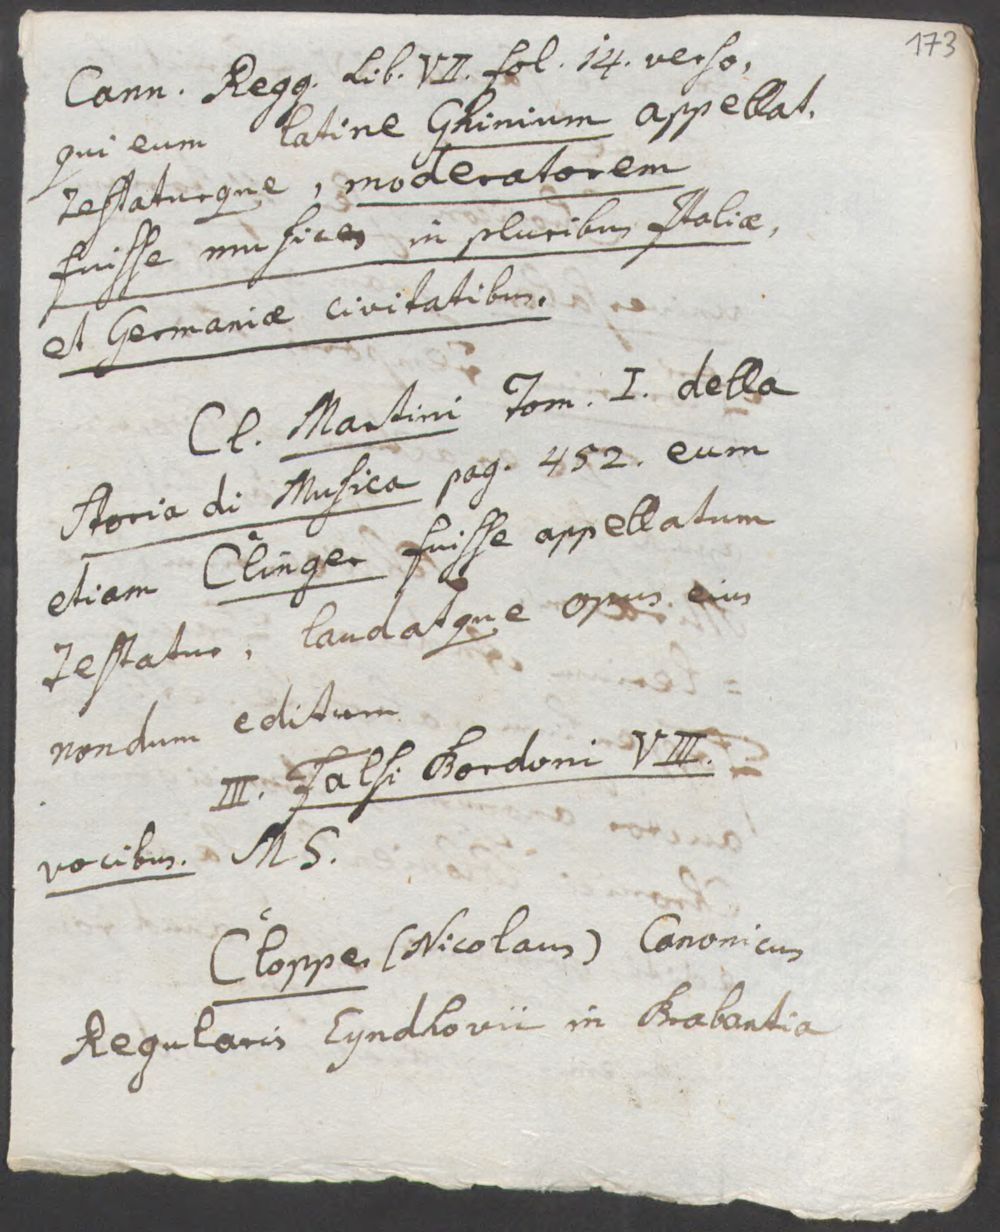 173
Cann. Regg. Lib. VII. fol. 14. verso,
qui eum latine Ghinium appellat.
Testaturque, moderatorem
fuisse musices in pluribus Italiæ,
et Germaniæ civitatibus.
Cl. Martini Tom. I. della
Storia di Musica pag. 452. eum
etiam Clinger fuisse appellatum
Testatur, laudatque opus eius
nondum editum
III. Falsi Bordoni VIII.
vocibus. MS.
Cloppe (Nicolaus) Canonicus
Regularis Eyndhovii in Brabantia